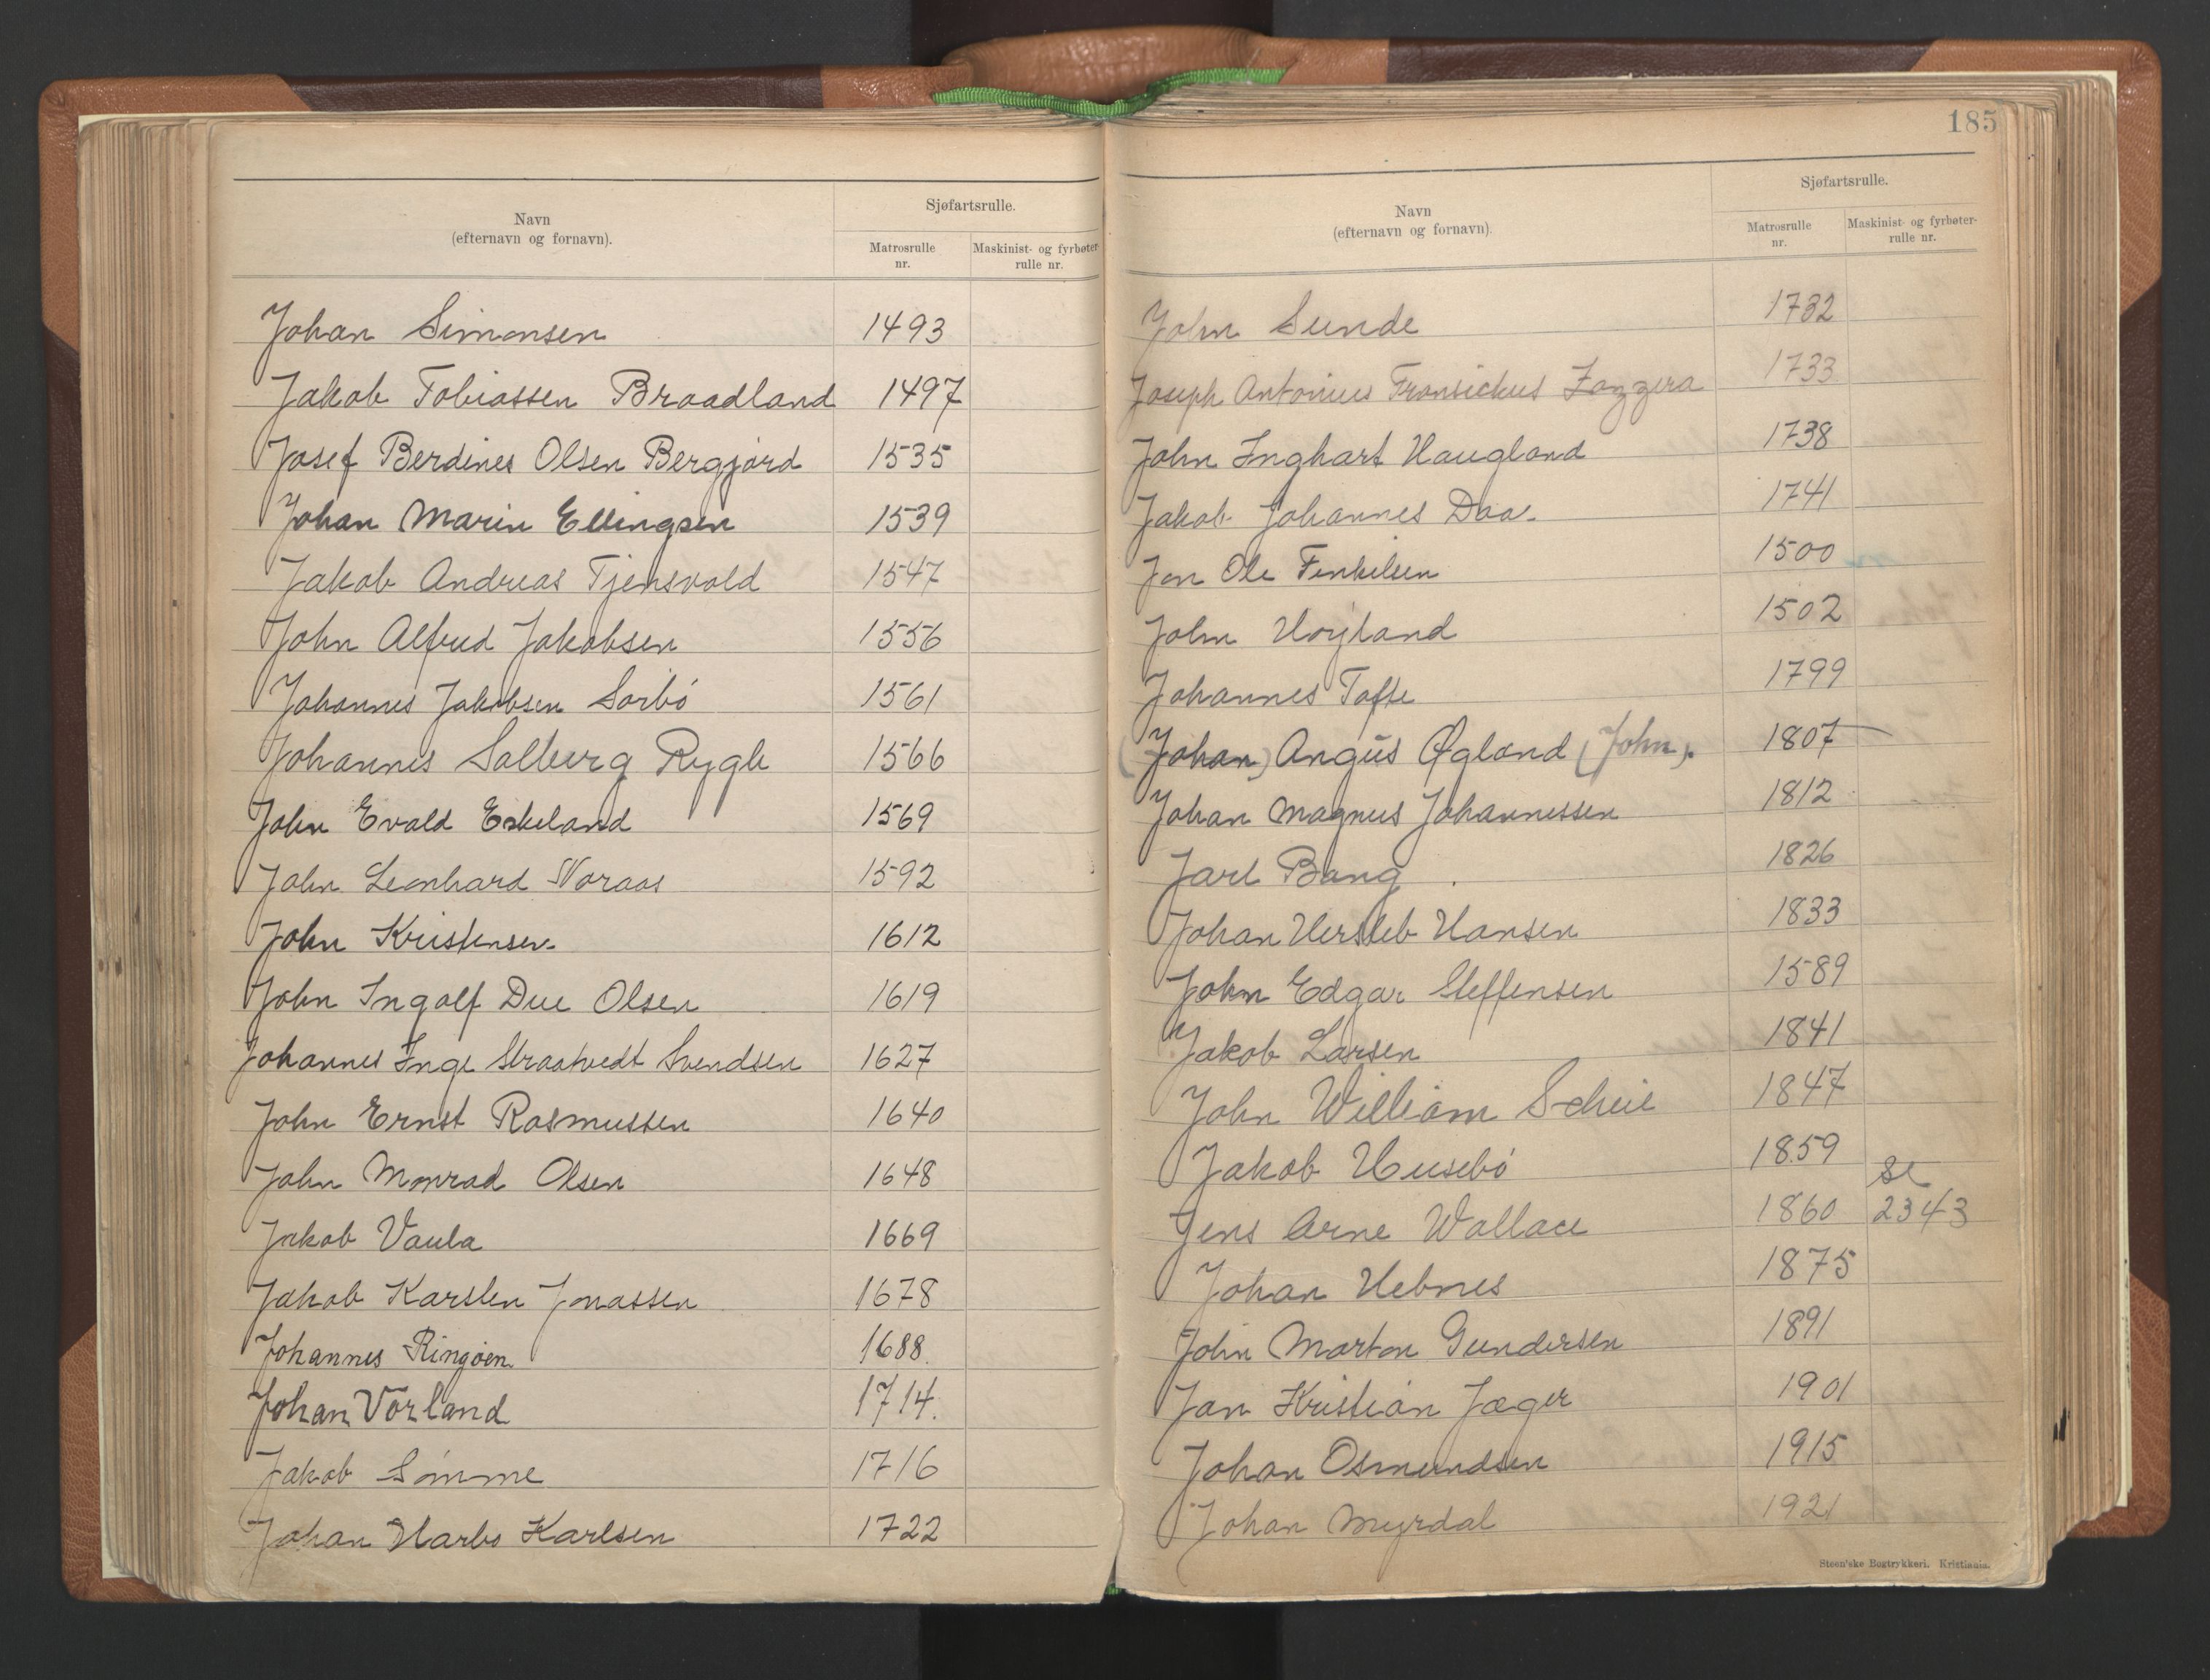 Navn
(efternavn og fornavn).
Sjøfartsrulle.
Matrosrulle nr.
Maskinist- og fyrbøter rulle nr.
Johan Simonsen 1493
Jakob Tobiassen Braadland 1497
Josef Berdines Olsen Bergjord 1535
Johan Marin Ellingsen 1539
Jakob Andreas Tjensvold 1547
John Alfred Jakobsen 1556
Johannes Jakobsen Sorbó 1561
Johannes Solberg Rygh 1566
John Evald Eskeland 1569
John Leonhard Noraas 1592
John Kristensen 1612
John Ingolf Due Olsen 1619
Johannes Inge Straatvedt Svendsen 1627
John Ernst Rasmussen 1640
John Monrad Olsen 1648
Jakob Vaula 1669
Jakob Karsten Jonassen 1678
Johannes Ringøen 1688.
Johan Vorland 1714.
Jakob Sömme 1716
Johan Harbo Karlsen 1722
185
Navn
(efternavn og fornavn).
Sjøfartsrulle.
Matrosrulle nr.
Maskinist- og fyrbøter- rulle nr.
John Sunde 1732
Joseph Antonius Fransickus Zazzera 1733
John Inghart Haugland 1738
Jakob Johannes Daa. 1741
Jon Ole 1500
John Höyland 1502
Johannes Tofte 1799
(Johan) Angus Øgland (John). 1807
Johan Magnus Johannessen 1812
Jarl Bang 1826
Johan Hersleb Hansen 1833
John Edgar Steffensen 1589
Jakob Larsen 1841
John William Scheie 1847
Jakob Husebó 1859
se
Jens Arne Wallace 1860 2343
Johan Hebnes 1875
John Marton Gundersen 1891
Jan Kristian Jæger 1901
Johan Osmundsen 1915
Johan Myrdal 1921
Steen'ske Bogtrykkeri. Kristiania.